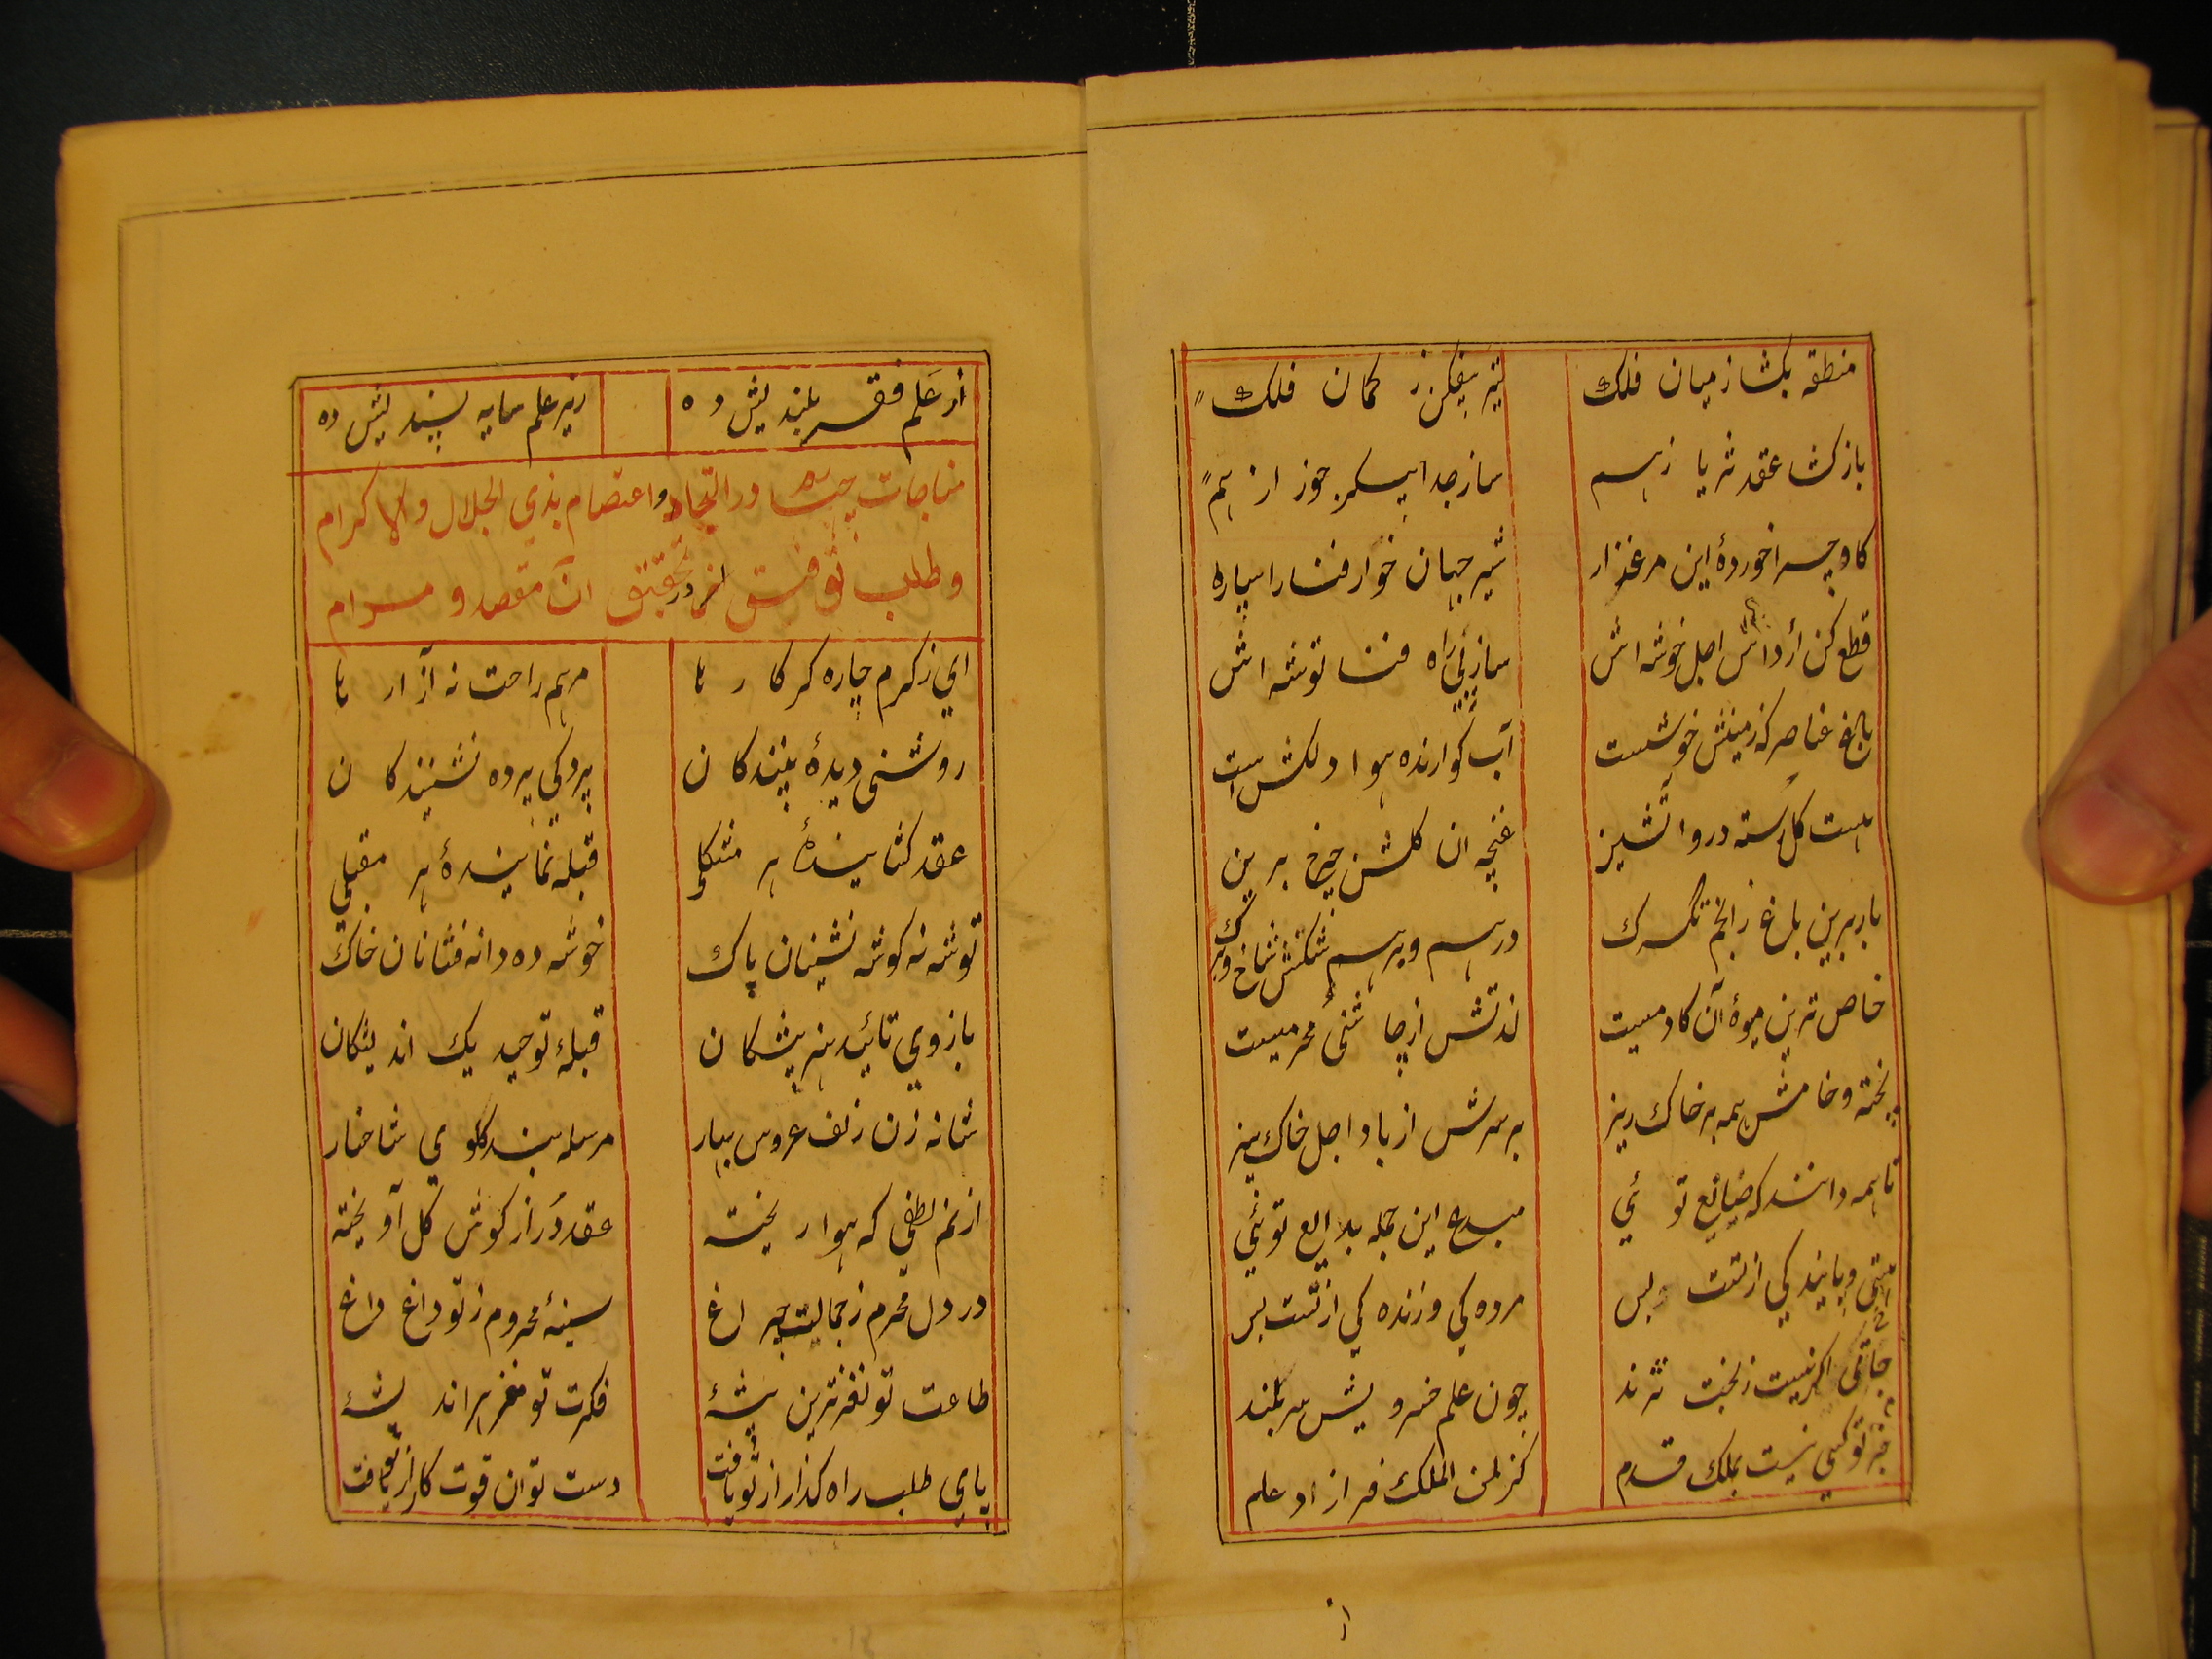 منطقه بکشا ز میان فلک تیر بیفکن ز کمان فلک
باز کشا عقد ثریا ز هم ساز جدا پیکر جوزا ز هم
کاو چرا خوردهٔ این مرغزار شیر جهان خوار فنا را سپار
قطع کن از داس اجل خوشه اش ساز پی راه فنا توشه اش
باغ عناصر که زمینش خوشست آب کوارنده هوا دلکش است
هست کل رسته درو آتشین غنچه ان کلشن چرخ برین
بار برین باغ ز انجم تکرک درهم و برهم شکنش شاخ و برک
خاص ترین میوهٔ آن کادمیست لذتش از چاشنئ محرمیست
پخته و خامش همه بر خاک ریز بر سرش از باد اجل خاک بیز
تا همه دانند که صانع توئی مبدع این جمله بدایع توئی
هستی و پایندکی از تست بس مرده کی و زنده کی از تست بس
جامی اکر نیست ز بخت نژند چون علم خسرویش سر بلند
جز تو کسی نیست بملک قدم کز لمن الملک فرازد علم
از
از علم فقر بلندیش ده زیر علم سایه پسندیش ده
مناجات چهارم در التجا و اعتصام بذی الجلال والاکرام
و طلب توفیق در تحقیق آن مقصد و مرام
ای ز کرم چاره کر کارها مرهم راحت نه آزارها
روشنی دیدهٔ بینندکان پردکی پرده نشینندکان
عقد کشایندهٔ هر مشکلی قبله نمایندهٔ هر مقبلی
توشه نه کوشه نشینان پاک خوشه ده دانه فشانان خاک
بازوی تائید هنر پیشکان قبلهٔ توحید یک اندیشکان
شانه زن زلف عروس بهار مرسله بند کلوی شاخسار
از نم لطفی که هوا ریخته عقد دُر از کوش کل آویخته
در دل محرم ز جمالت چراغ سینهٔ محروم ز تو داغ داغ
طاعت تو نغز ترین پیشهٔ فکرت تو مغز هر اندیشهٔ
پای طلب راه کذار از تو یافت دست توان قوت کار از تو یافت